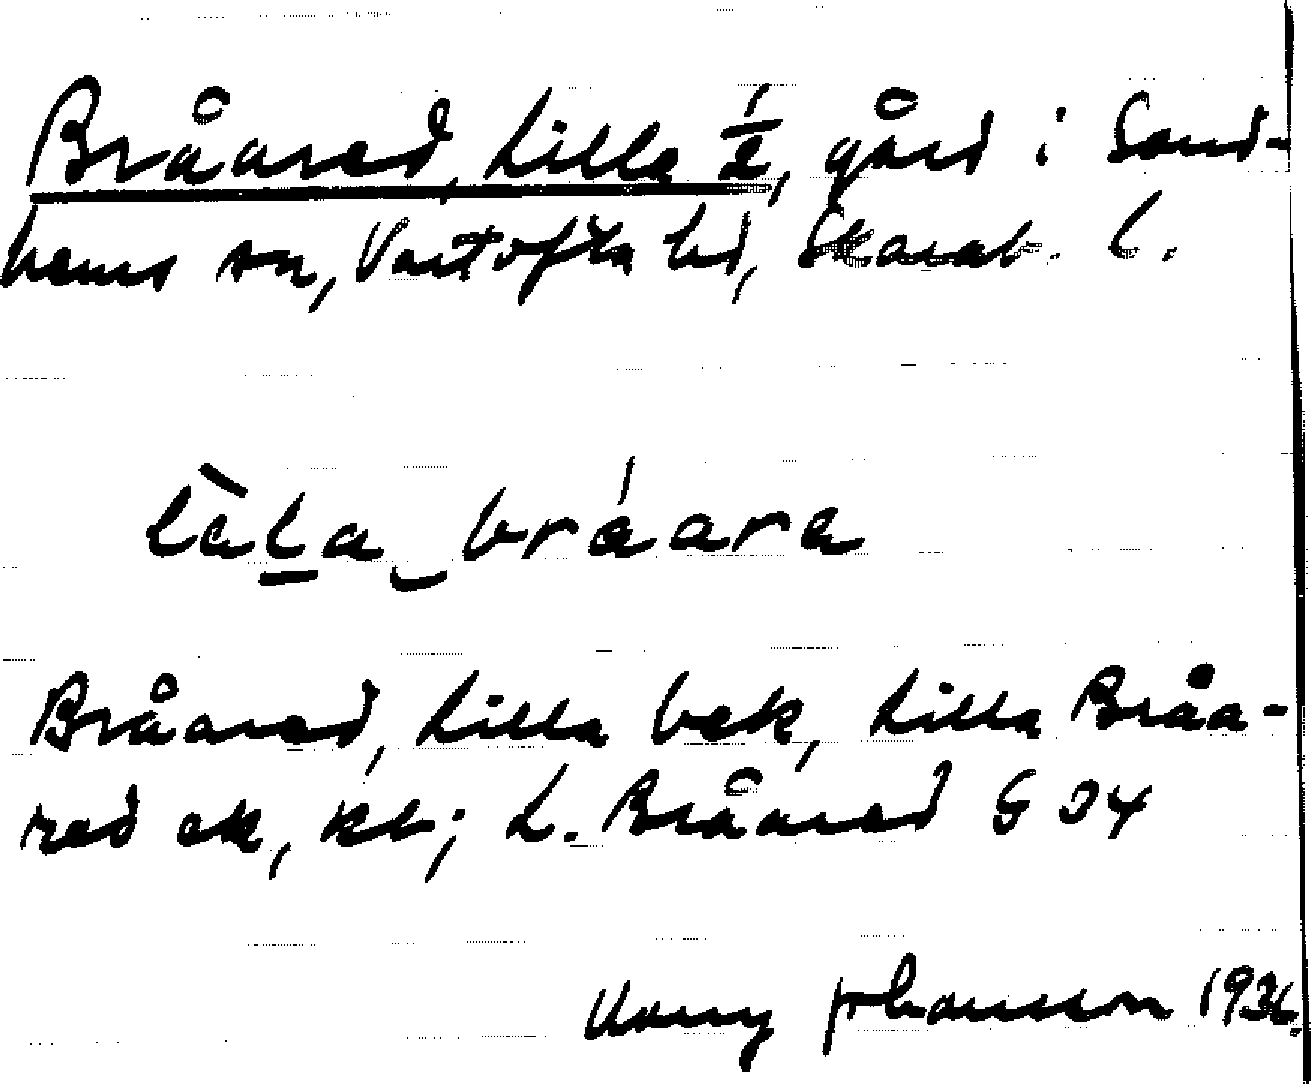 Bråared, Lilla 1/2, gård i Sand-
hems sn, Vartofta hd, Skarab. l.
làla bráara
Bråared, Lilla bek, Lilla Bråa-
red ek, kb; L. Bråared G 04
Johansson 1936.